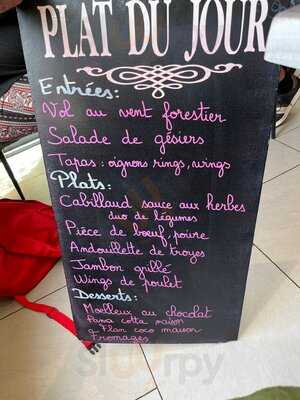 PLAT DU JOUR
Entrées:
Vol au vent forestier
Salade de gésiers
Tapas: oignons rings, wings
Plats:
Cabillaud sauce aux herbes
duo de légumes
Pièce de bœuf, poivre
Andouillette de troyes
Jambon grillé
Wings de poulet
Desserts:
Moelleux au chocolat
Pana cotta maison
Flan coco maison
Fromages